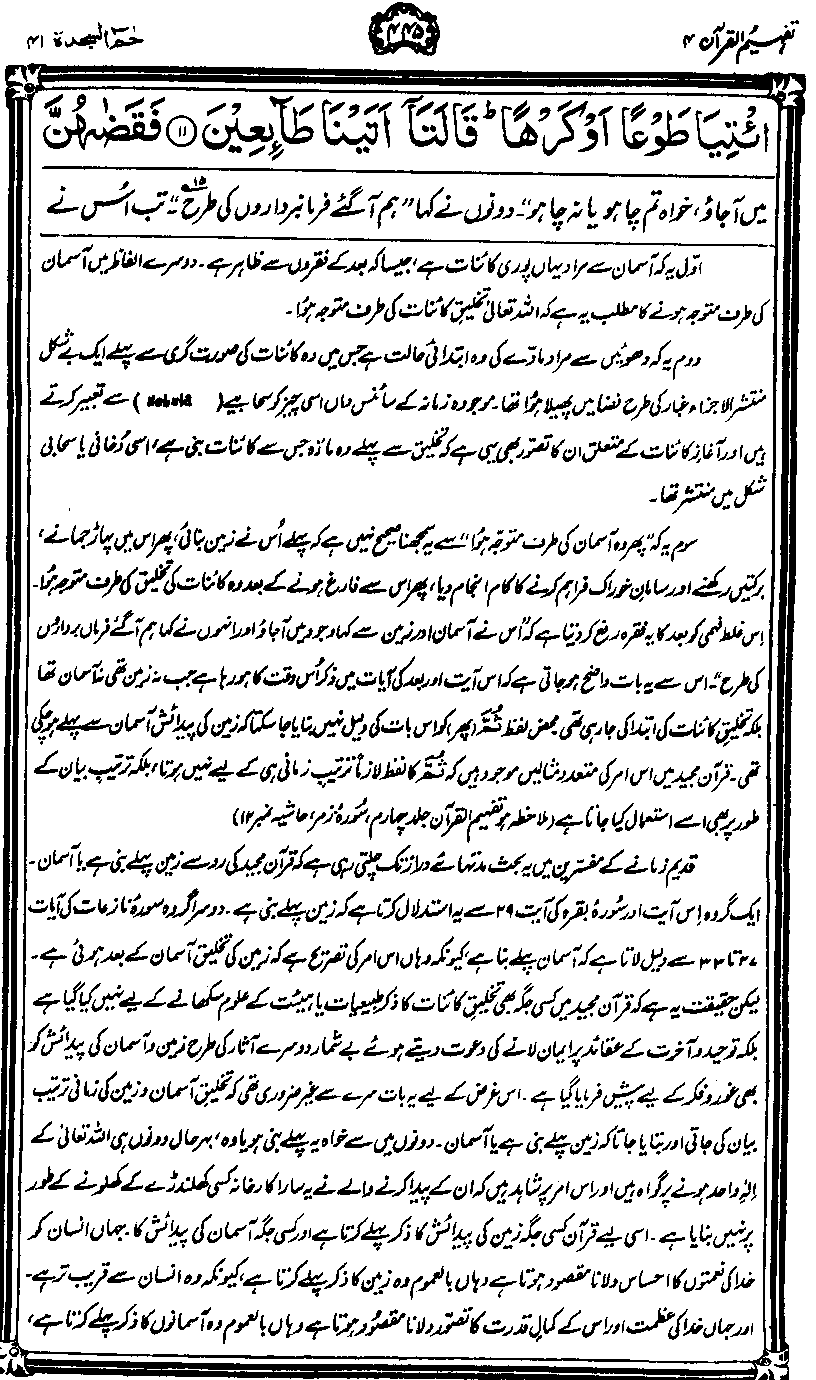 تفہیم القرآن ۴
۴۴۵
حٰمٓ السجدة ۴۱
ائْتِيَا طَوْعًا اَوْ كَرْهًا ؕ قَالَتَاۤ اَتَيْنَا طَآىِٕعِيْنَ ۝۱۱ فَقَضٰىهُنَّ
میں آجاؤ، خواہ تم چاہو یا نہ چاہو“۔ دونوں نے کہا ”ہم آگئے فرمانبرداروں کی طرح“۔۱۵ تب اُس نے
اوّل یہ کہ آسمان سے مراد یہاں پوری کائنات ہے، جیسا کہ بعد کے فقروں سے ظاہر ہے۔ دوسرے الفاظ میں آسمان
کی طرف متوجہ ہونے کا مطلب یہ ہے کہ اللہ تعالیٰ تخلیقِ کائنات کی طرف متوجہ ہُوا۔
دوم یہ کہ دھوئیں سے مراد مادّے کی وہ ابتدائی حالت ہے جس میں وہ کائنات کی صورت گری سے پہلے ایک بے شکل
منتشر الاجزاء غبار کی طرح فضا میں پھیلا ہُوا تھا۔ موجودہ زمانہ کے سائنس داں اسی چیز کو سحابیے (Nebula) سے تعبیر کرتے
ہیں اور آغازِ کائنات کے متعلق ان کا تصوّر بھی یہی ہے کہ تخلیق سے پہلے وہ مادّہ جس سے کائنات بنی ہے، اسی دُخانی یا سحابی
شکل میں منتشر تھا۔
سوم یہ کہ ”پھر وہ آسمان کی طرف متوجّہ ہُوا“ سے یہ سمجھنا صحیح نہیں ہے کہ پہلے اُس نے زمین بنائی، پھر اس میں پہاڑ جمانے،
برکتیں رکھنے اور سامانِ خوراک فراہم کرنے کا کام انجام دیا، پھر اس سے فارغ ہونے کے بعد وہ کائنات کی تخلیق کی طرف متوجہ ہُوا۔
اِس غلط فہمی کو بعد کا یہ فقرہ رفع کر دیتا ہے کہ ”اُس نے آسمان اور زمین سے کہا وجود میں آجاؤ اور انہوں نے کہا ہم آگئے فرماں برداروں
کی طرح“۔ اس سے یہ بات واضح ہو جاتی ہے کہ اس آیت اور بعد کی آیات میں ذکر اُس وقت کا ہو رہا ہے جب نہ زمین تھی نہ آسمان تھا
بلکہ تخلیقِ کائنات کی ابتدا کی جا رہی تھی۔ محض لفظ ثُمَّ (پھر) کو اس بات کی دلیل نہیں بنایا جا سکتا کہ زمین کی پیدائش آسمان سے پہلے ہو چکی
تھی۔ قرآن مجید میں اس امر کی متعدد مثالیں موجود ہیں کہ ثُمَّ کا لفظ لازماً ترتیبِ زمانی ہی کے لیے نہیں ہوتا، بلکہ ترتیبِ بیان کے
طور پر بھی اسے استعمال کیا جاتا ہے (ملاحظہ ہو تفہیم القرآن جلد چہارم، سُورۂ زمر، حاشیہ نمبر ۱۲)
قدیم زمانے کے مفسّرین میں یہ بحث مدتہائے دراز تک چلتی رہی ہے کہ قرآن مجید کی رو سے زمین پہلے بنی ہے یا آسمان۔
ایک گروہ اِس آیت اور سُورۂ بقرہ کی آیت ۲۹ سے یہ استدلال کرتا ہے کہ زمین پہلے بنی ہے۔ دوسرا گروہ سورۂ نازعات کی آیات
۲۷ تا ۳۳ سے دلیل لاتا ہے کہ آسمان پہلے بنا ہے، کیونکہ وہاں اس امر کی تصریح ہے کہ زمین کی تخلیق آسمان کے بعد ہوئی ہے۔
لیکن حقیقت یہ ہے کہ قرآن مجید میں کسی جگہ بھی تخلیقِ کائنات کا ذکر طبیعیات یا ہیئت کے علوم سکھانے کے لیے نہیں کیا گیا ہے
بلکہ توحید و آخرت کے عقائد پر ایمان لانے کی دعوت دیتے ہوئے بے شمار دوسرے آثار کی طرح زمین و آسمان کی پیدائش کو
بھی غور و فکر کے لیے پیش فرمایا گیا ہے۔ اس غرض کے لیے یہ بات سرے سے غیر ضروری تھی کہ تخلیقِ آسمان و زمین کی زمانی ترتیب
بیان کی جاتی اور بتایا جاتا کہ زمین پہلے بنی ہے یا آسمان۔ دونوں میں سے خواہ یہ پہلے بنی ہو یا وہ، بہرحال دونوں ہی اللہ تعالیٰ کے
الٰہِ واحد ہونے پر گواہ ہیں اور اس امر پر شاہد ہیں کہ ان کے پیدا کرنے والے نے یہ سارا کارخانہ کسی کھلنڈرے کے کھلونے کے طور
پر نہیں بنایا ہے۔ اسی لیے قرآن کسی جگہ زمین کی پیدائش کا ذکر پہلے کرتا ہے اور کسی جگہ آسمان کی پیدائش کا۔ جہاں انسان کو
خدا کی نعمتوں کا احساس دلانا مقصود ہوتا ہے وہاں بالعموم وہ زمین کا ذکر پہلے کرتا ہے، کیونکہ وہ انسان سے قریب تر ہے۔
اور جہاں خدا کی عظمت اور اس کے کمالِ قدرت کا تصوّر دلانا مقصُود ہوتا ہے وہاں بالعموم وہ آسمانوں کا ذکر پہلے کرتا ہے،